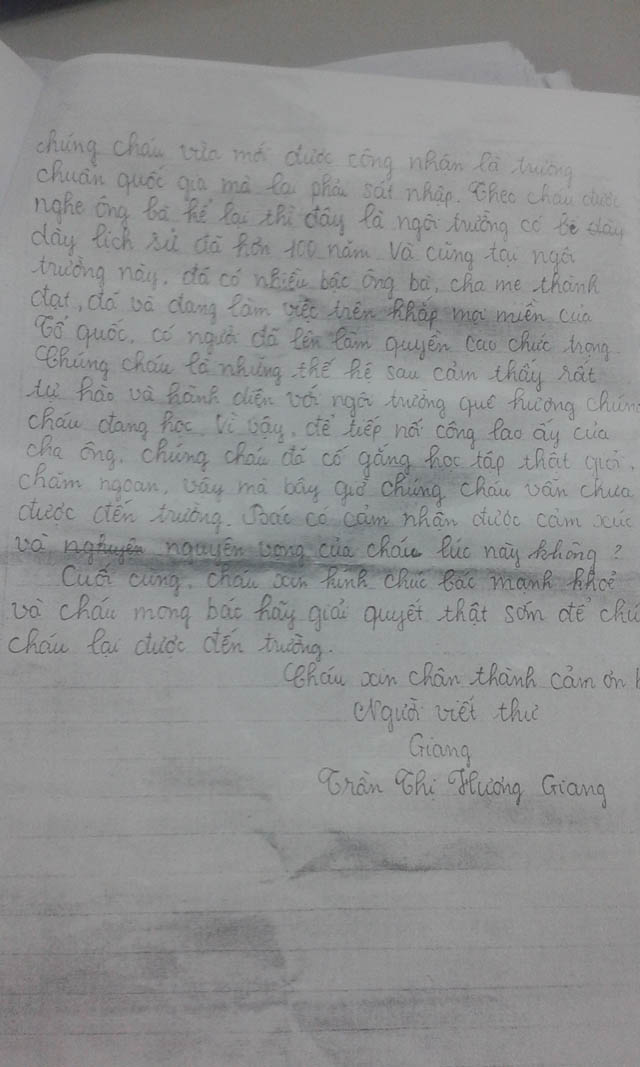 chúng cháu vừa mới được công nhân là trường
chuẩn quốc gia mà lại phải sát nhập. Theo cháu được
nghe ông bà kể lại thì đây là ngôi trường có bề dày
dày lịch sử đã hơn 100 năm. Và cũng tại ngôi
trường này, đã có nhiều bậc ông bà, cha mẹ thành
đạt, đã và đang làm việc trên khắp mọi miền của
Tổ quốc, có người đã lên làm quyền cao chức trọng
Chúng cháu là những thế hệ sau cảm thấy rất
tự hào và hãnh diện với ngôi trường quê hương chúng
cháu đang học. Vì vậy, để tiếp nối công lao ấy của
cha ông, chúng cháu đã cố gắng học tập thật giỏi,
chăm ngoan, vậy mà bây giờ chúng cháu vẫn chưa
được đến trường. Bác có cảm nhận được cảm xúc
và nguyện vọng của cháu lúc này không?
Cuối cùng, cháu xin kính chúc bác mạnh khoẻ
và cháu mong bác hãy giải quyết thật sớm để chú
cháu lại được đến trường.
Cháu xin chân thành cảm ơn
Người viết thư
Giang
Trần Thị Hương Giang